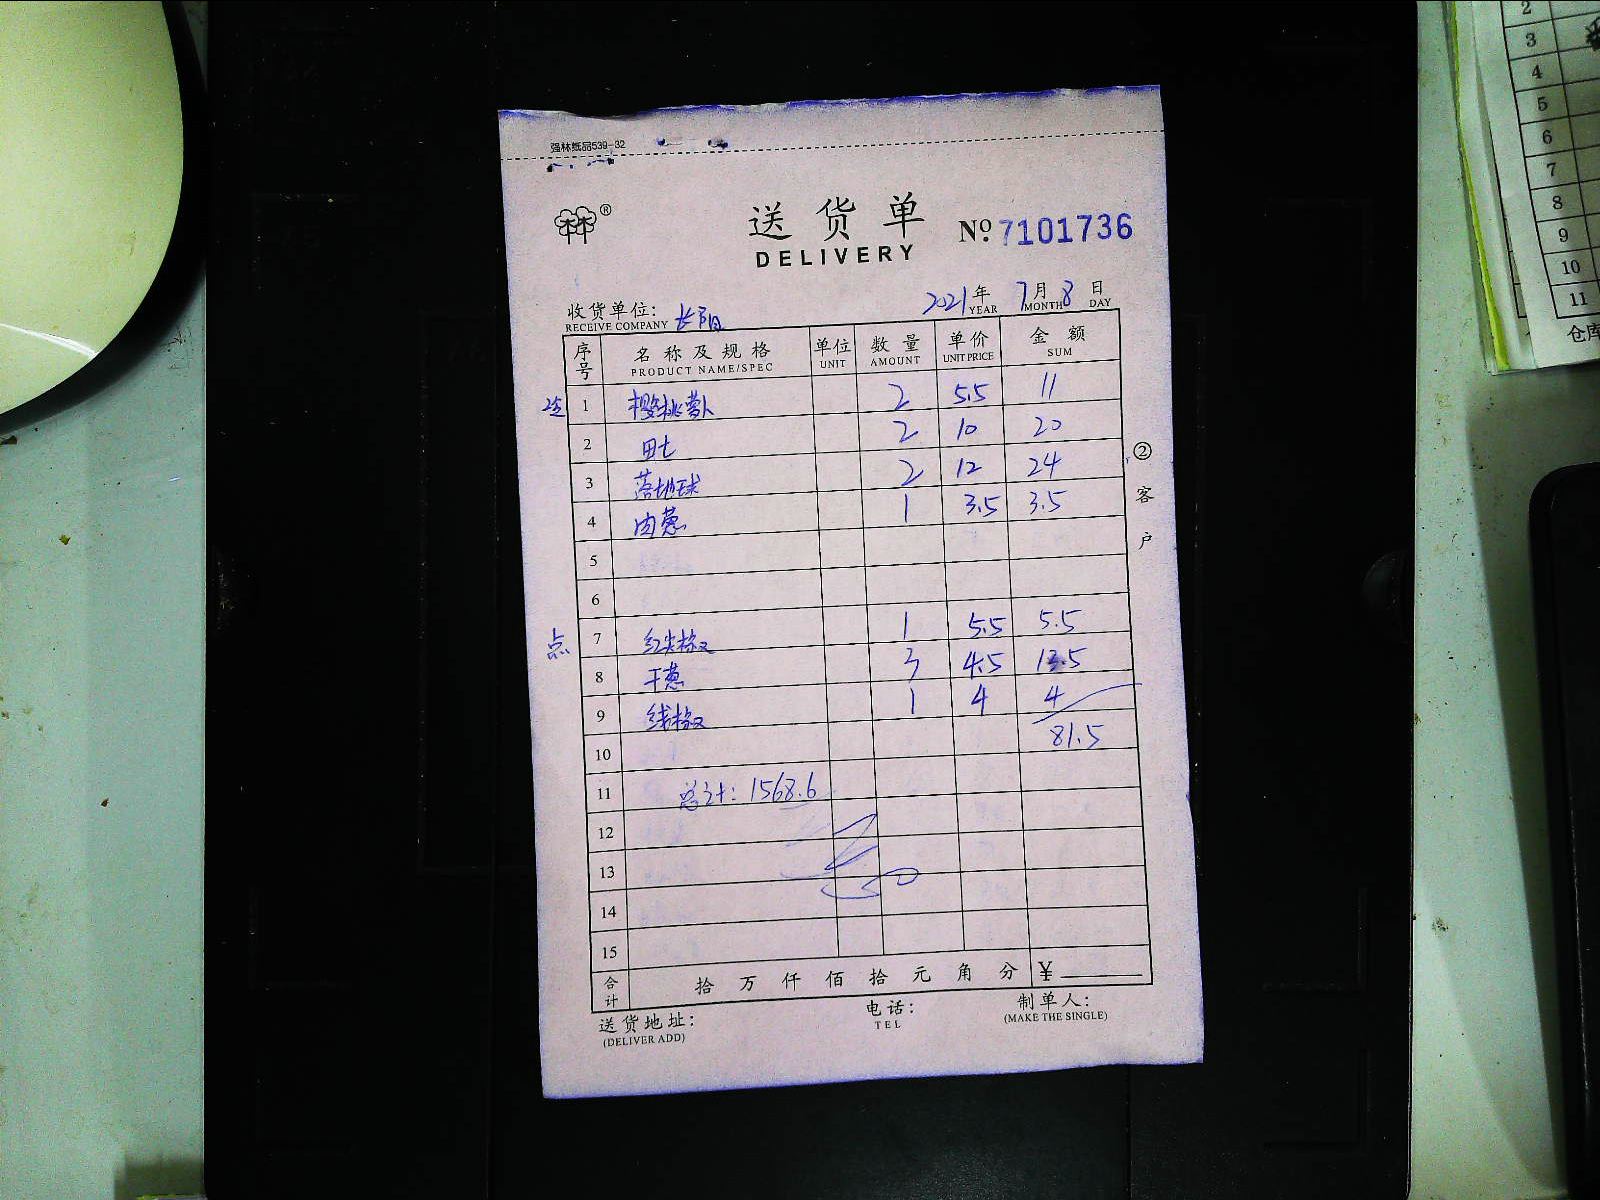 强林纸品539-32
®
送货单
DELIVERY
№ 7101736
收货单位: 长阳
RECEIVE COMPANY
2021年 7月 8日
YEAR MONTH DAY
序号 名称及规格 单位 数量 单价 金额
PRODUCT NAME/SPEC UNIT AMOUNT UNIT PRICE SUM
1 樱桃萝卜 2 5.5 11
2 田七 2 10 20
3 落地球 2 12 24
4 肉葱 1 3.5 3.5
5
6
点 7 红尖椒 1 5.5 5.5
8 干葱 3 4.5 13.5
9 线椒 1 4 4
10 81.5
11 总计: 1568.6
12
13
14
15
合计 拾 万 仟 佰 拾 元 角 分 ¥
②客户
送货地址:
(DELIVER ADD)
电话:
TEL
制单人:
(MAKE THE SINGLE)
2
3
4
5
6
7
8
9
10
11
仓库